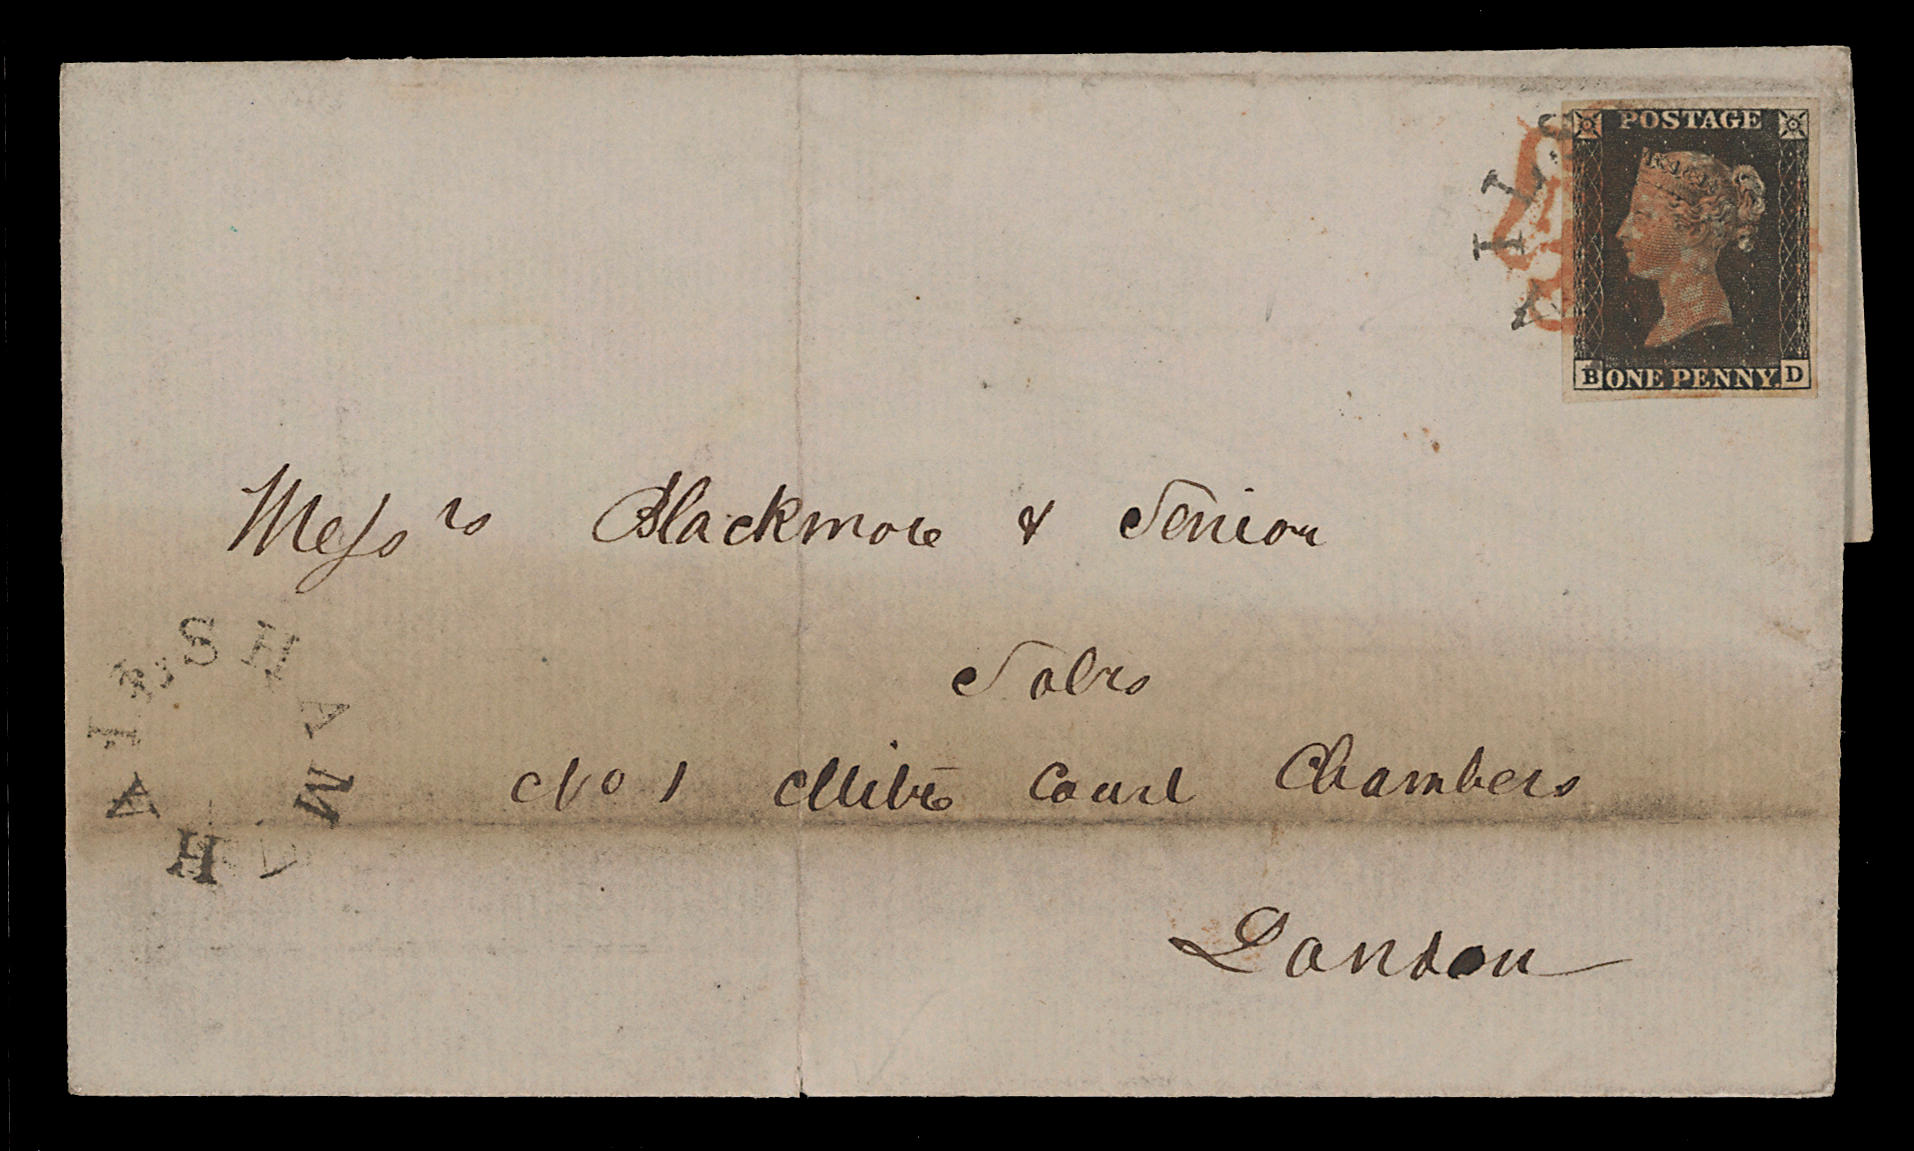 POSTAGE
B ONE PENNY. D
Messrs Blackmore & Senior
Solrs
No 1 Mitre Court Chambers
London
HAILSHAM